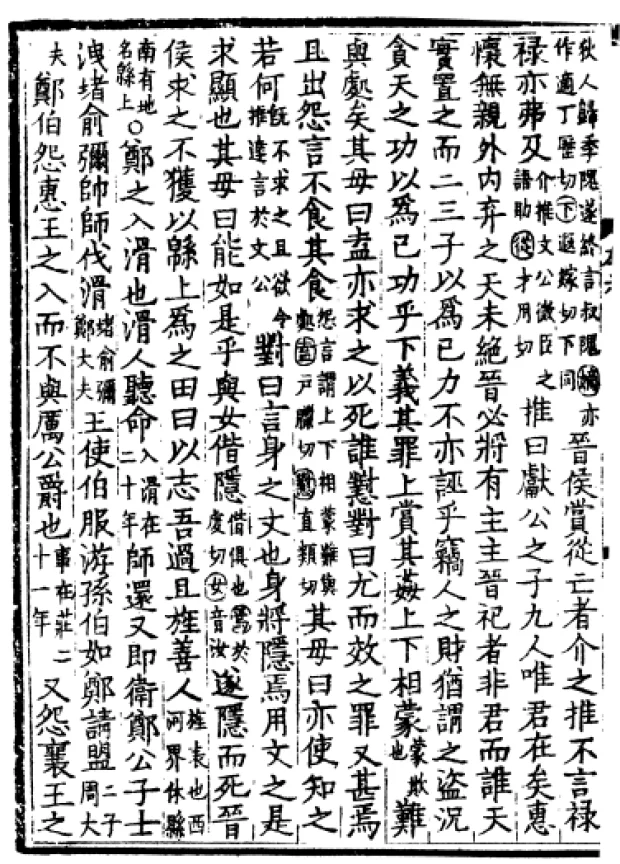 狄人歸季隗遂終言叔隗嫡亦作適丁歷切下遐嫁切下同晉侯賞從亡者介之推不言祿
祿亦弗及介推文公微臣之語助從才用切推曰獻公之子九人唯君在矣惠
懷無親外内弃之天未絶晉必將有主主晉祀者非君而誰天
實置之而二三子以爲已力不亦誣乎竊人之財猶謂之盗況
貪天之功以爲已功乎下義其罪上賞其姦上下相蒙蒙欺也難
與處矣其母曰盍亦求之以死誰懟對曰尤而效之罪又甚焉
且出怨言不食其食怨言謂上下相蒙難與處盍戸臘切懟直類切其母曰亦使知之
若何既不求之且欲令推達言於文公對曰言身之文也身將隱焉用文之是
求顯也其母曰能如是乎與女偕隱偕俱也焉於虔切女音汝遂隱而死晉
侯求之不獲以緜上爲之田曰以志吾過且旌善人旌表也西河界休縣
南有地名緜上○鄭之入滑也滑人聽命入滑在二十年師還又即衛鄭公子士
洩堵俞彌帥師伐滑堵俞彌鄭大夫王使伯服游孫伯如鄭請盟二子周大
夫鄭伯怨惠王之入而不與厲公爵也事在莊二十一年又怨襄王之